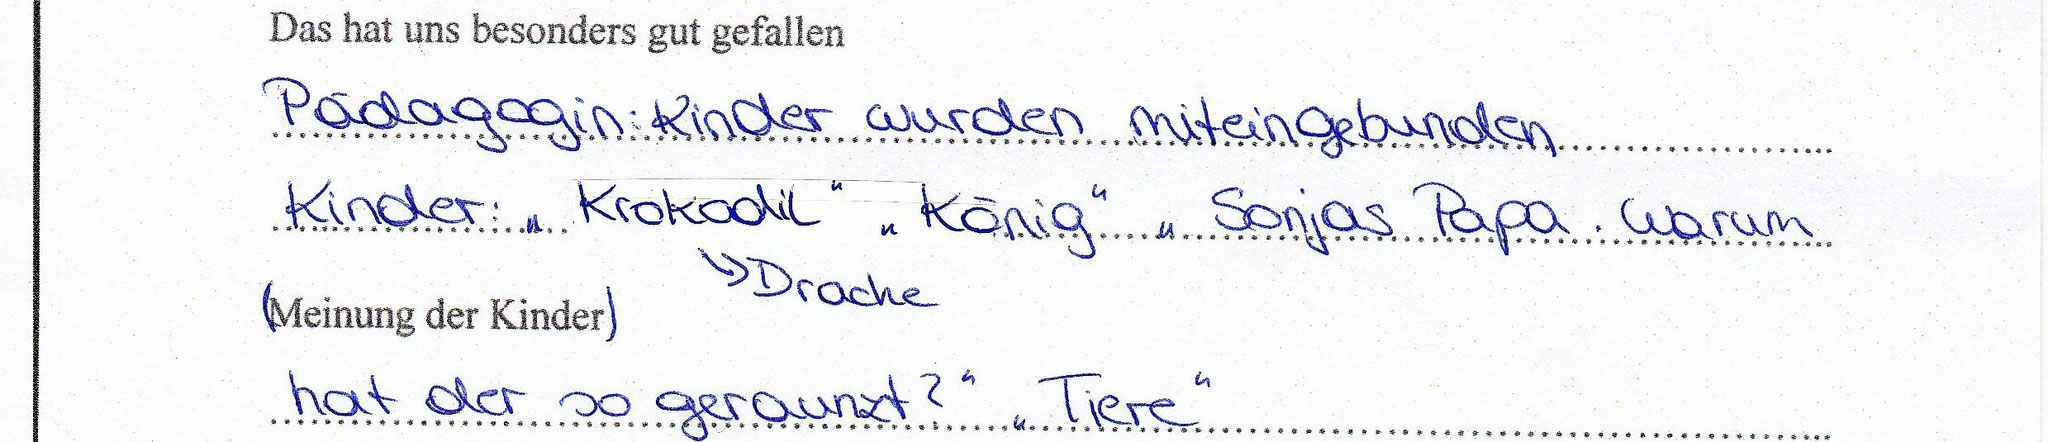 Das hat uns besonders gut gefallen
Pädagogin: Kinder wurden miteingebunden
Kinder: „Krokodil“ „König“ „Sonjas Papa. Warum
↳Drache
(Meinung der Kinder)
hat der so geraunzt?“ „Tiere“